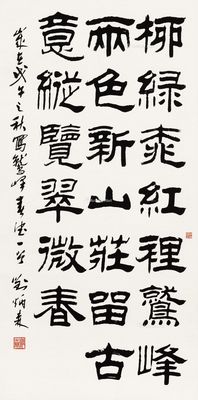 柳綠桃紅裡鷲峰
雨色新山莊留古
意縱覽翠微春
歲在戊午之秋寫鷲峰春一首 劉炳森